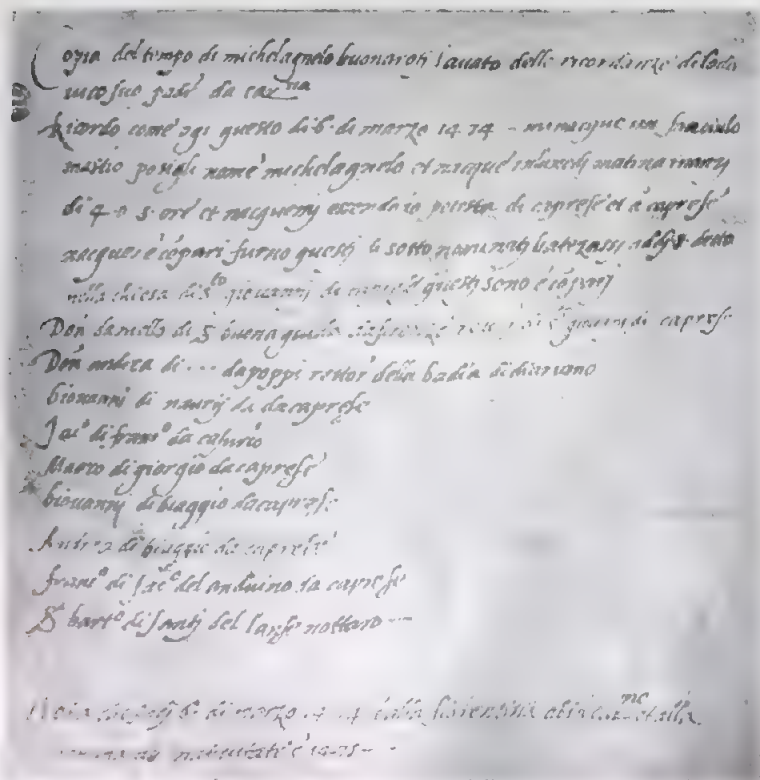 Copia del tempo di michelagnelo buonaroti lavato delle ricordanze di lodo
vico suo padre da car
Ricordo come ogi questo di 6 di marzo 1474 mi nacque un fanciulo
mastio posigli nome michelagnelo et nacque in lunedj matina inanzj
di 4 o 5 ore et nacquemj essendo io potesta di caprese et a caprese
nacque e copari furno questj di sotto nominatj batezassj addj 8 detto
nella chiesa di s.to giovannj di caprese questj sono e coparj
Don daniello di S buona guida da di s.to giovannj di caprese
Don andrea di ... da poppi rettore della badia di diariano
Giovannj di da caprese
Jac.o di franc.o da
Marco di giorgio da caprese
Giovannj di biaggio da caprese
Andrea di biaggio da caprese
franc.o di Jac.o del anduino da caprese
S bart.o di santj del lanse nottaro
Nota che addj 6 di marzo 1474 alla fiorentina ab incar.ne et alla
romana da nativitate e 1475